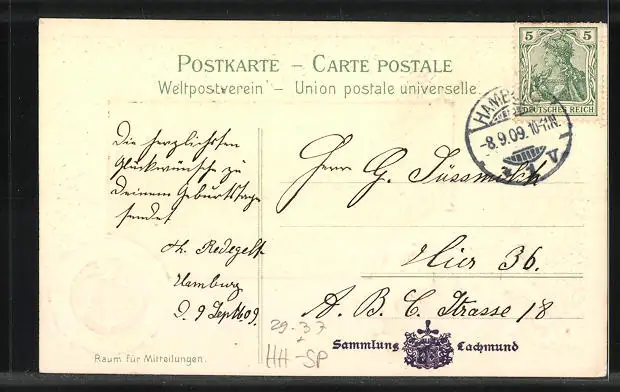 POSTKARTE – CARTE POSTALE
Weltpostverein – Union postale universelle.
5 5
DEUTSCHES REICH
HAMBURG
-8.9.09.10-11N.
Die herzlichsten
Glückwünsche zu
Deinem Geburtstage
sendet
Th.
Hamburg
D. 9 Sept 09.
Herrn G. Süssmilch
Hier 36.
A. B. C. Strasse 18
29.37
HH-SP
Sammlung Lachmund
Raum für Mitteilungen.